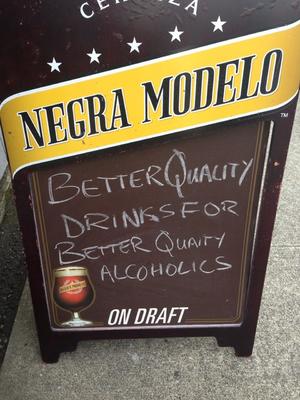 CERVEZA
NEGRA MODELO
TM
BETTER QUALITY
DRINKS FOR
BETTER QUAITY
ALCOHOLICS
NEGRA MODELO
ON DRAFT